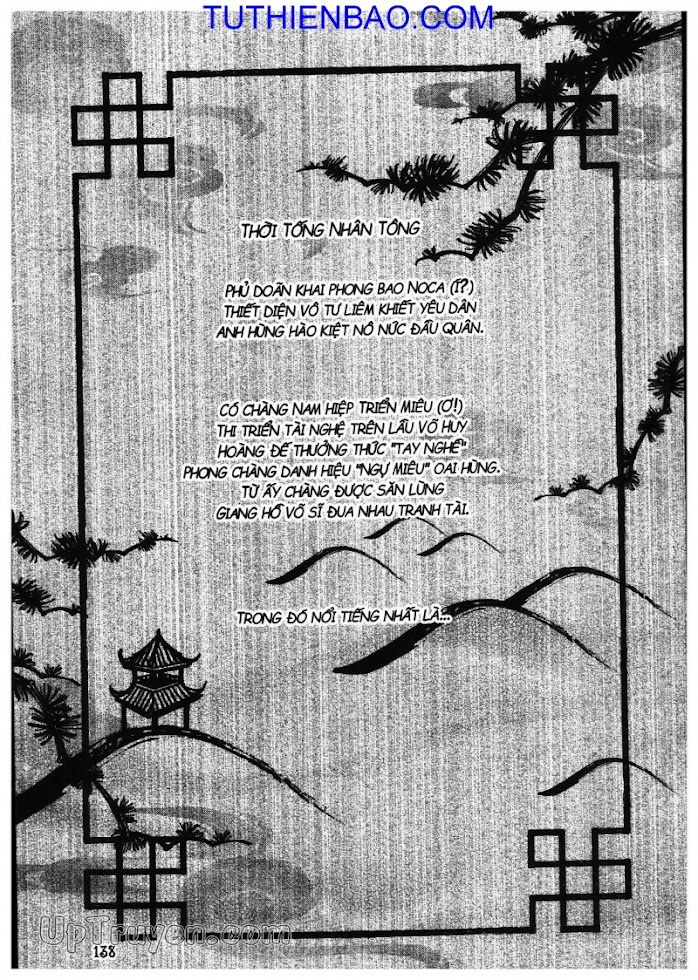 TUTHIENBAO.COM
THỜI TỐNG NHÂN TÔNG
PHỦ DOÃN KHAI PHONG BAO NOCA (Ị?)
THIẾT DIỆN VÔ TƯ LIÊM KHIẾT YÊU DÂN
ANH HÙNG HÀO KIỆT NÔ NỨC ĐẦU QUÂN.
CÓ CHÀNG NAM HIỆP TRIỂN MIÊU (Ơ!)
THI TRIỂN TÀI NGHỆ TRÊN LẦU VÕ HUY
HOÀNG ĐẾ THƯỞNG THỨC "TAY NGHỀ"
PHONG CHÀNG DANH HIỆU "NGỰ MIÊU" OAI HÙNG.
TỪ ẤY CHÀNG ĐƯỢC SĂN LÙNG
GIANG HỒ VÕ SĨ ĐUA NHAU TRANH TÀI.
TRONG ĐÓ NỔI TIẾNG NHẤT LÀ...
UpTruyen.com
138